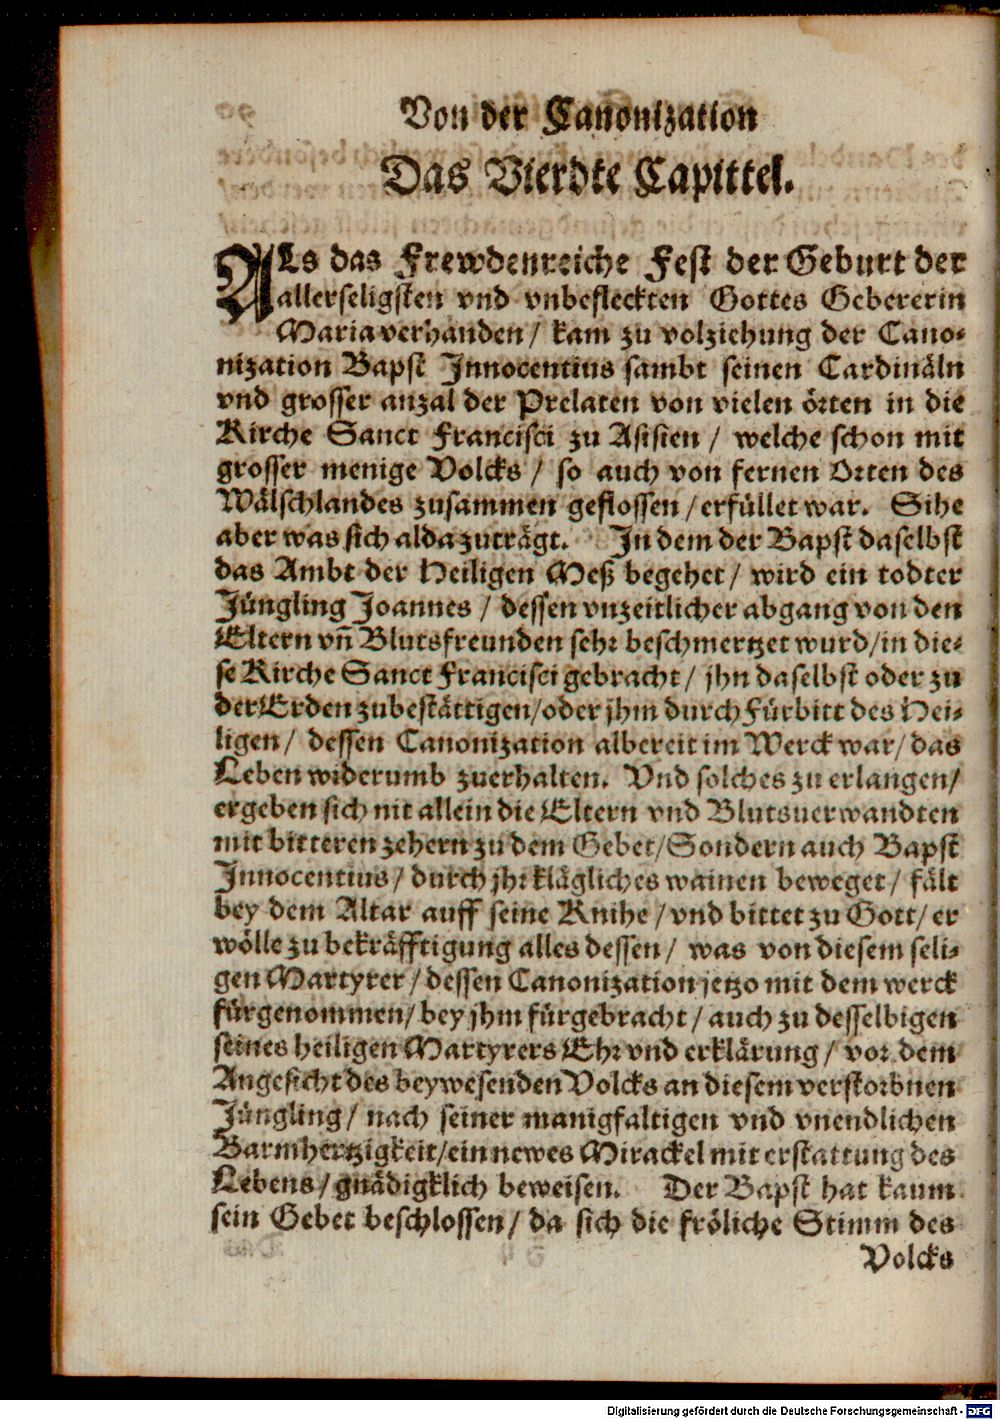 Von der Canonization
Das Vierdte Capittel.
ALs das Frewdenreiche Fest der Geburt der
allerseligsten vnd vnbefleckten Gottes Gebererin
Maria verhanden / kam zu volziehung der Cano-
nization Bapst Innocentius sambt seinen Cardinäln
vnd grosser anzal der Prelaten von vielen örten in die
Kirche Sanct Francisci zu Asisien / welche schon mit
grosser menige Volcks / so auch von fernen Orten des
Wälschlandes zusammen geflossen / erfüllet war. Sihe
aber was sich alda zuträgt. In dem der Bapst daselbst
das Ambt der Heiligen Meß begehet / wird ein todter
Jüngling Joannes / dessen vnzeitlicher abgang von den
Eltern vñ Blutsfreunden sehr beschmertzet wurd / in die-
se Kirche Sanct Francisci gebracht / jhn daselbst oder zu
der Erden zubestättigen / oder jhm durch Fürbitt des Hei-
ligen / dessen Canonization albereit im Werck war / das
Leben widerumb zuerhalten. Vnd solches zu erlangen /
ergeben sich nit allein die Eltern vnd Blutsuerwandten
mit bitteren zehern zu dem Gebet / Sondern auch Bapst
Innocentius / durch jhr klägliches wainen beweget / fält
bey dem Altar auff seine Knihe / vnd bittet zu Gott / er
wölle zu bekräfftigung alles dessen / was von diesem seli-
gen Martyrer / dessen Canonization jetzo mit dem werck
fürgenommen / bey jhm fürgebracht / auch zu desselbigen
seines heiligen Martyrers Ehr vnd erklärung / vor dem
Angesicht des beywesenden Volcks an diesem verstorbnen
Jüngling / nach seiner manigfaltigen vnd vnendlichen
Barmhertzigkeit / ein newes Mirackel mit erstattung des
Lebens / gnädigklich beweisen. Der Bapst hat kaum
sein Gebet beschlossen / da sich die fröliche Stimm des
Volcks
Digitalisierung gefördert durch die Deutsche Forschungsgemeinschaft - DFG